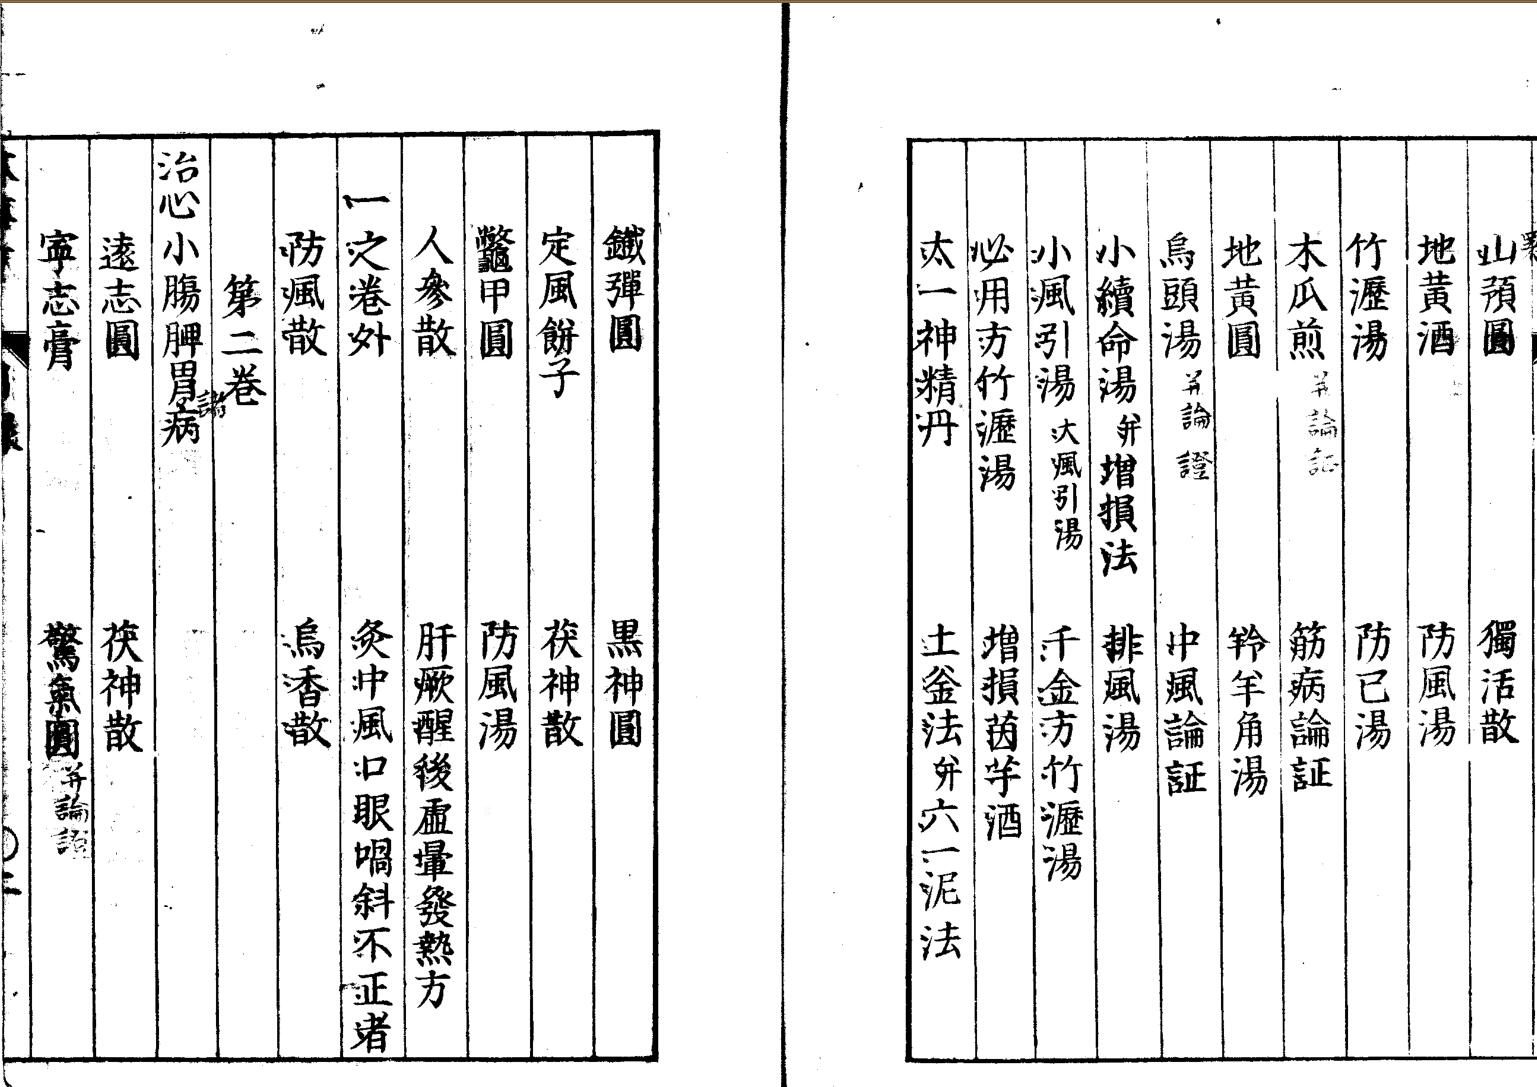 山預圓 獨活散
地黄酒 防風湯
竹瀝湯 防已湯
木瓜煎 并論証 筋病論証
地黄圓 羚羊角湯
烏頭湯 并論證 中風論証
小續命湯 并増損法 排風湯
小風引湯 大風引湯 千金方竹瀝湯
必用方竹瀝湯 増損茵芋酒
太一神精丹 土釜法并六一泥法
鐵彈圓 黒神圓
定風餅子 茯神散
鼈甲圓 防風湯
人參散 肝厥醒後虚暈發熱方
一之卷外 灸中風口眼喎斜不正者
防風散 烏香散
第二卷
治心小腸脾胃諸病
遠志圓 茯神散
寧志膏 驚氣圓 并論證